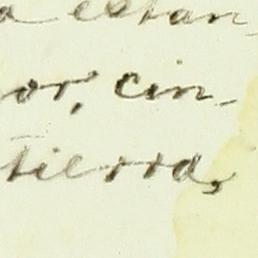 a estan-
or, cin-
tierra,